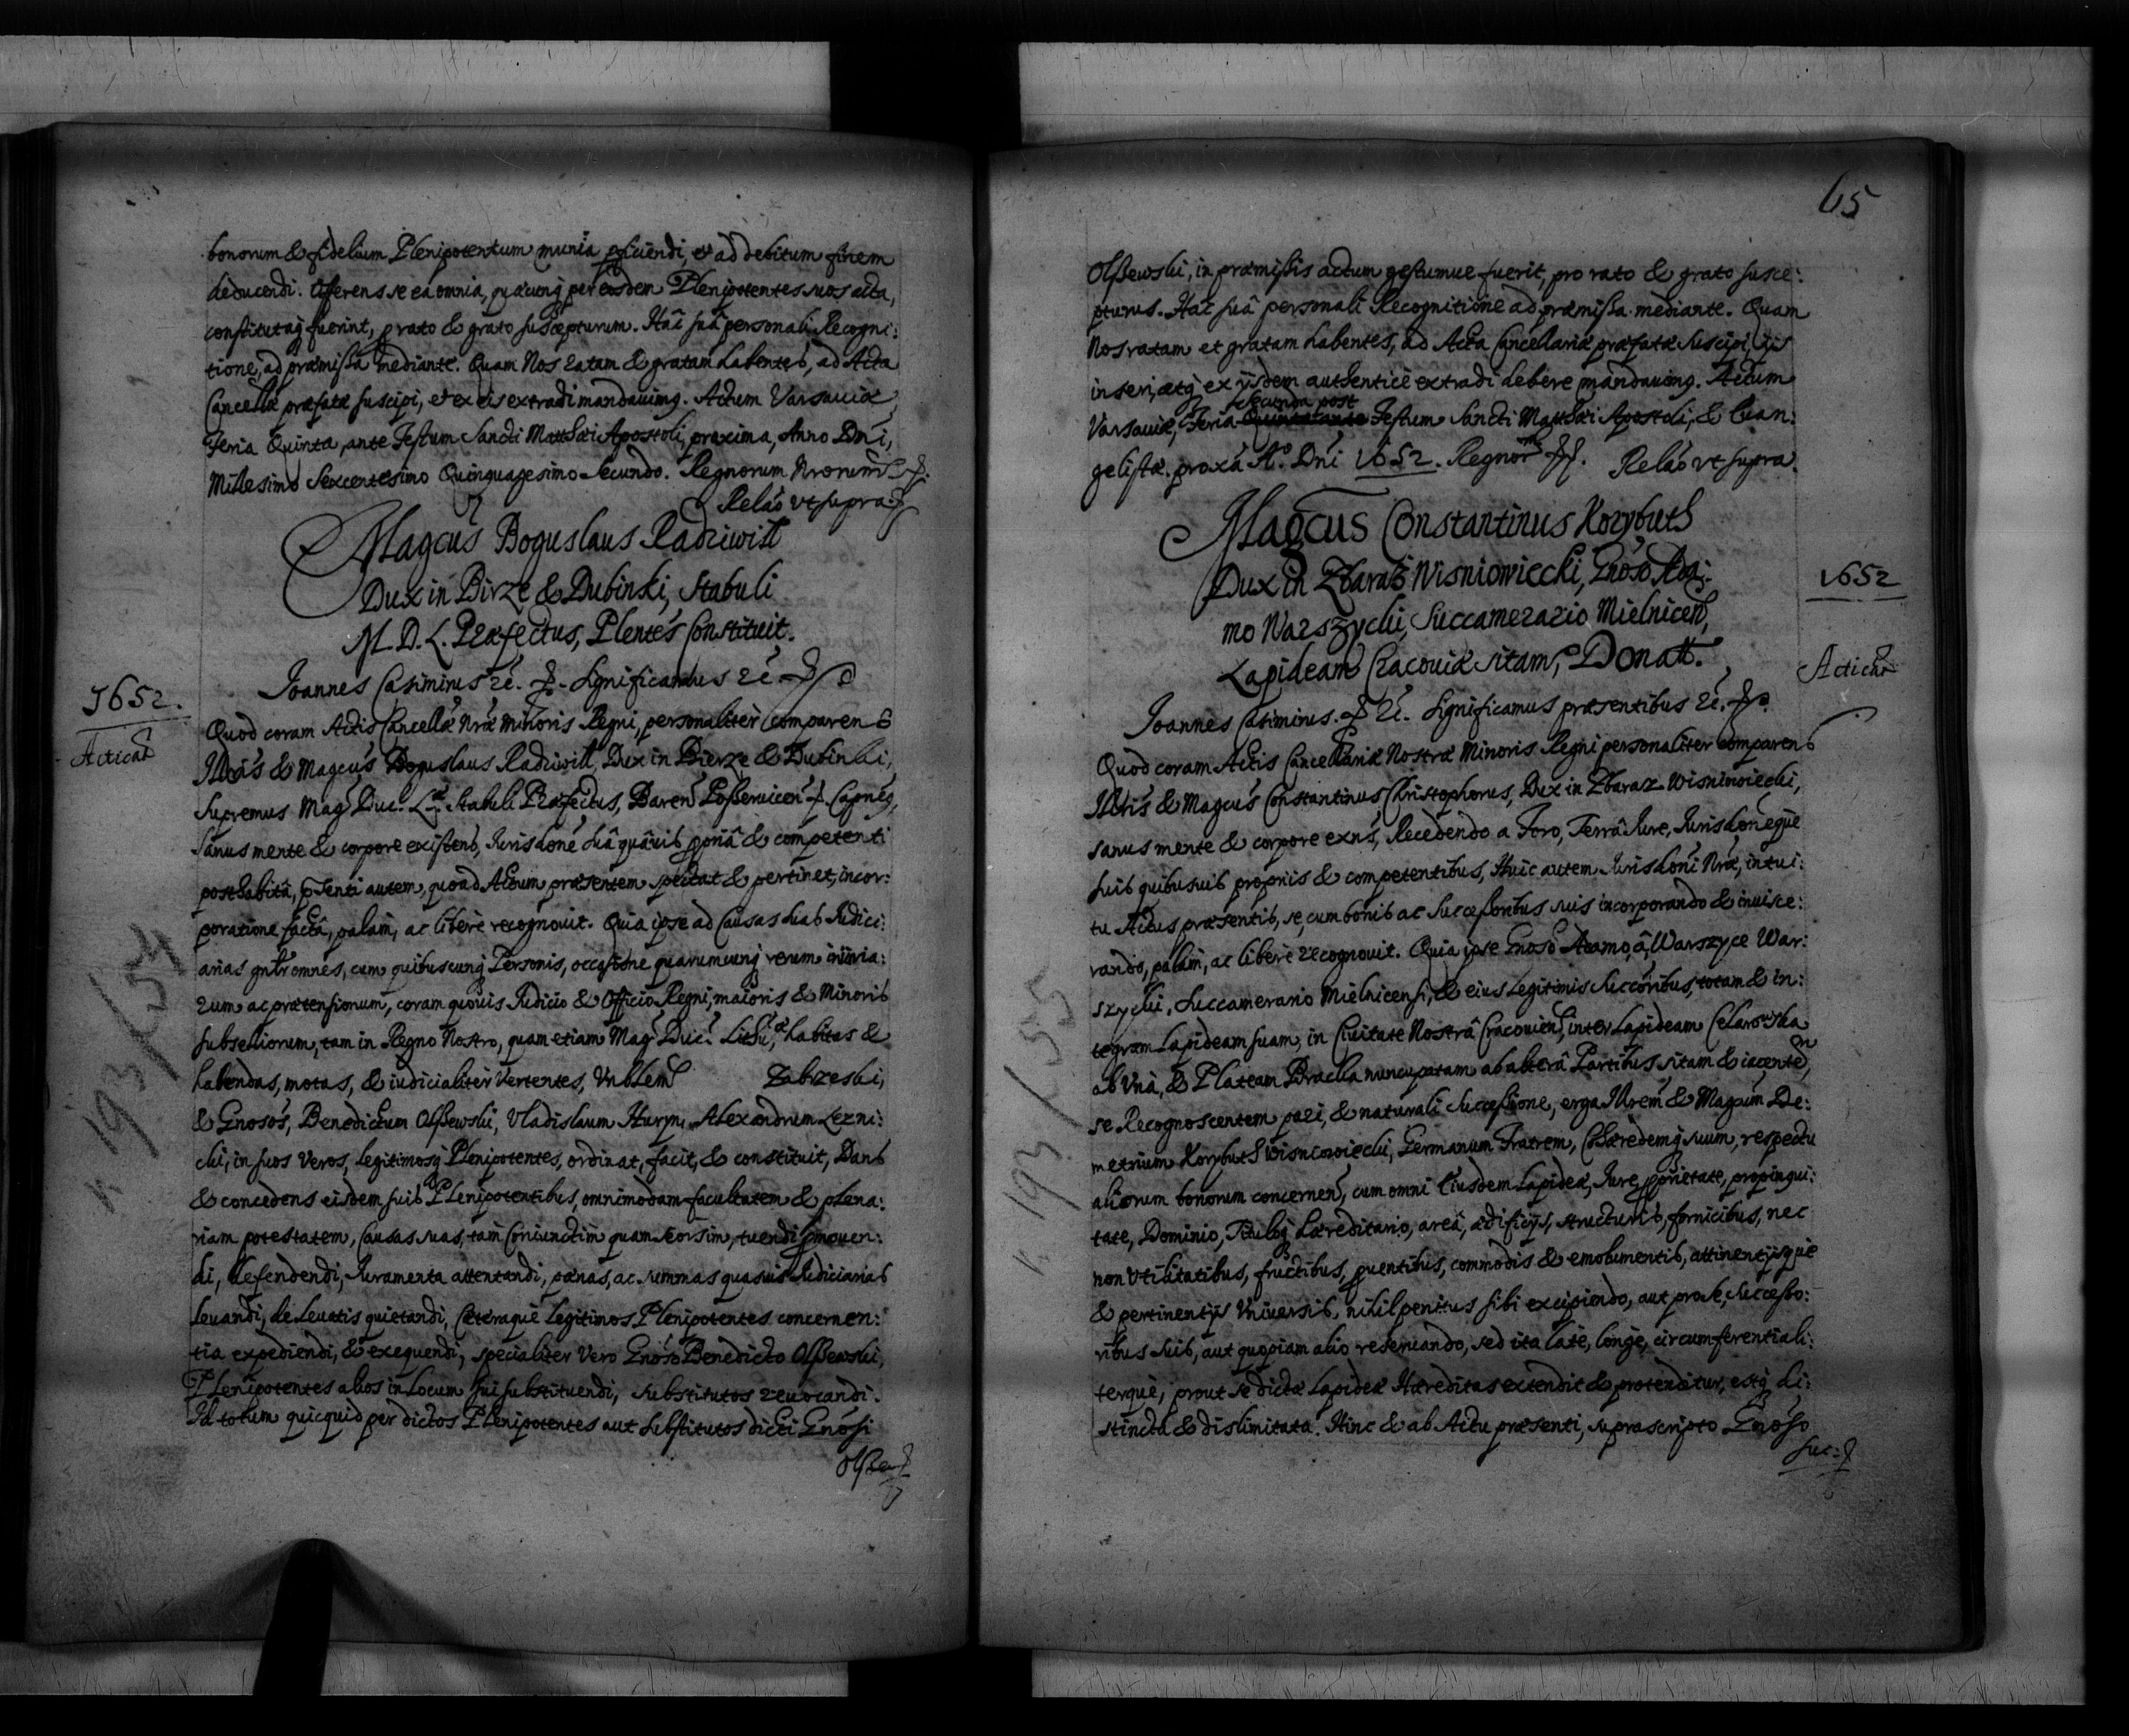 bonorum & fidelium Plenipotentum munia pficiendi, et ad debitum finem
deducendi. Offerens se ea omnia, quæcunq per eosdem Plenipotentes suos acta,
constitutaq fuerint, prato & grato suscepturum. Hac suâ personali Recogni:
tione, ad præmissa mediante. Quam Nos ratam & gratam habentes, ad Acta
Cancellæ præfatæ suscipi, et ex eis extradi mandavimq. Actum Varsaviæ
Feria Quinta, ante Festum Sancti Matthæi Apostoli, proxima, Anno Dni,
Millesimo Sexcentesimo Quinquagesimo Secundo. Regnorum Nrorum
Relao vt supra.
Magcus Boguslaus Radziwill
Dux in Birze & Dubinki, Stabuli
M. D. L. Præfectus, Plentes Constituit.
Joannes Casimirus &c. Significamus &c
1652.
Acticat
Quod coram Actis Cancellæ Nræ Minoris Regni, personaliter comparens
Illris & Magcus Boguslaus Radziwill, Dux in Bierze & Dubinki,
Supremus Mag Duc. Stabuli Præfectus, Baren Capneq,
sanus mente & corpore existens, Jurisdone suâ quâvis ppriâ & competenti
posthabitâ, psenti autem, quoad Actum præsentem spectat & pertinet, incor:
poratione factâ, palam, ac libere recognovit. Quia ipse ad Causas suas Judici:
arias gnlr omnes, cum quibuscunq Personis, occasione quarumcunq rerum iniuria:
rum ac prætensionum, coram quovis Judicio & Officio Regni, maioris & Minoris
subselliorum, tam in Regno Nostro, quam etiam Mag Duc. habitas &
habendas, motas, & iudicialiter Vertentes, Zabrzeski,
& Gnosos, Benedictum Olszewski, Vladislaum Huryn, Alexandrum Lezni:
cki, in suos Veros, legitimosq Plenipotentes, ordinat, facit, & constituit, Dans
& concedens eisdem suis Plenipotentibus, omnimodam facultatem & plena:
riam potestatem, Causas suas, tam Coniunctim quam seorsim, tuendi pmoven:
di, defendendi, Juramenta attentandi, pænas, ac summas quasvis Judiciarias
levandi, de levatis quietandi, Cæteraque Legitimos Plenipotentes concernen:
tia expediendi, & exequendi, specialiter Vero Gnoso Benedicto Olszewski,
Plenipotentes alios in Locum sui substituendi, substitutos revocandi.
Id totum quicquid per dictos Plenipotentes aut substitutos dicti Gnosi
Olszew
n 193/54
65
Olszewski, in præmissis actum gestumue fuerit, pro rato & grato susce:
pturus. Hac suâ personali Recognitione ad præmissa mediante. Quam
Nos ratam et gratam habentes, ad Acta Cancellariæ præfatæ suscipi, ijs
inseri, atq ex ijsdem authentice extradi debere mandavimq. Actum
secunda post
Varsaviæ, Feria Quinta ante Festum Sancti Matthæi Apostoli, & Evan:
gelistæ. proxa Ao. Dni 1652. Regnor Relao vt supra.
Magcus Constantinus Korybuth
Dux in Zbaraż Wisniowiecki, Gnoso Ada:
mo Warszycki, Succamerario Mielnicen,
Lapideam Cracoviæ sitam, Donatt.
1652
Acticat
Joannes Casimirus. &c. Significamus præsentibus &c.
Quod coram Actis Cancellariæ Nostræ Minoris Regni personaliter comparens
Illris & Magcus Constantinus Christophorus, Dux in Zbaraz Wisniowiecki,
sanus mente & corpore exns, Recedendo a Foro, Terrâ Jure, Jurisdoneque
suis quibusuis proprijs & competentibus, Huic autem Jurisdoni Nræ, intui:
tu Actus præsentis, se, cum bonis ac Successoribus suis incorporando & invisce:
rando, palam, ac libere recognovit. Quia ipse Gnoso Adamo, â Warszyce War:
szycki, Succamerario Mielnicensi, & eius Legitimis Succoribus, totam & in:
tegram Lapideam suam, in Civitate Nostrâ Cracovien, inter Lapideam Celarowska
ab Vnâ, & Plateam Bracka nuncupatam ab alterâ Partibus sitam & iacentem,
se Recognoscentem paci, & naturali Successione, erga Illrem & Magcum De:
metrium Korybuth Wisniowiecki, Germanum Fratrem, Cohæredemq suum, respectu
aliorum bonorum concernen, cum omni Eiusdem Lapideæ, Jure, pprietate, propinqui:
tate, Dominio, Tituloq hæreditario, areâ, ædificijs, structuris, fornicibus, nec
non Vtilitatibus, fructibus, puentibus, commodis & emolumentis, attinentijsque
& pertinentijs Vniversis, nihil penitus sibi excipiendo, aut pro se, Successo:
ribus suis, aut quopiam alio reservando, sed ita late, longe, circumferentiali:
terque, prout se dictæ Lapideæ Hæreditas extendit & protenditur, estq di:
stincta & dislimitata. Hinc & ab Actu præsenti, suprascripto Gnoso
suc:
n. 193/55